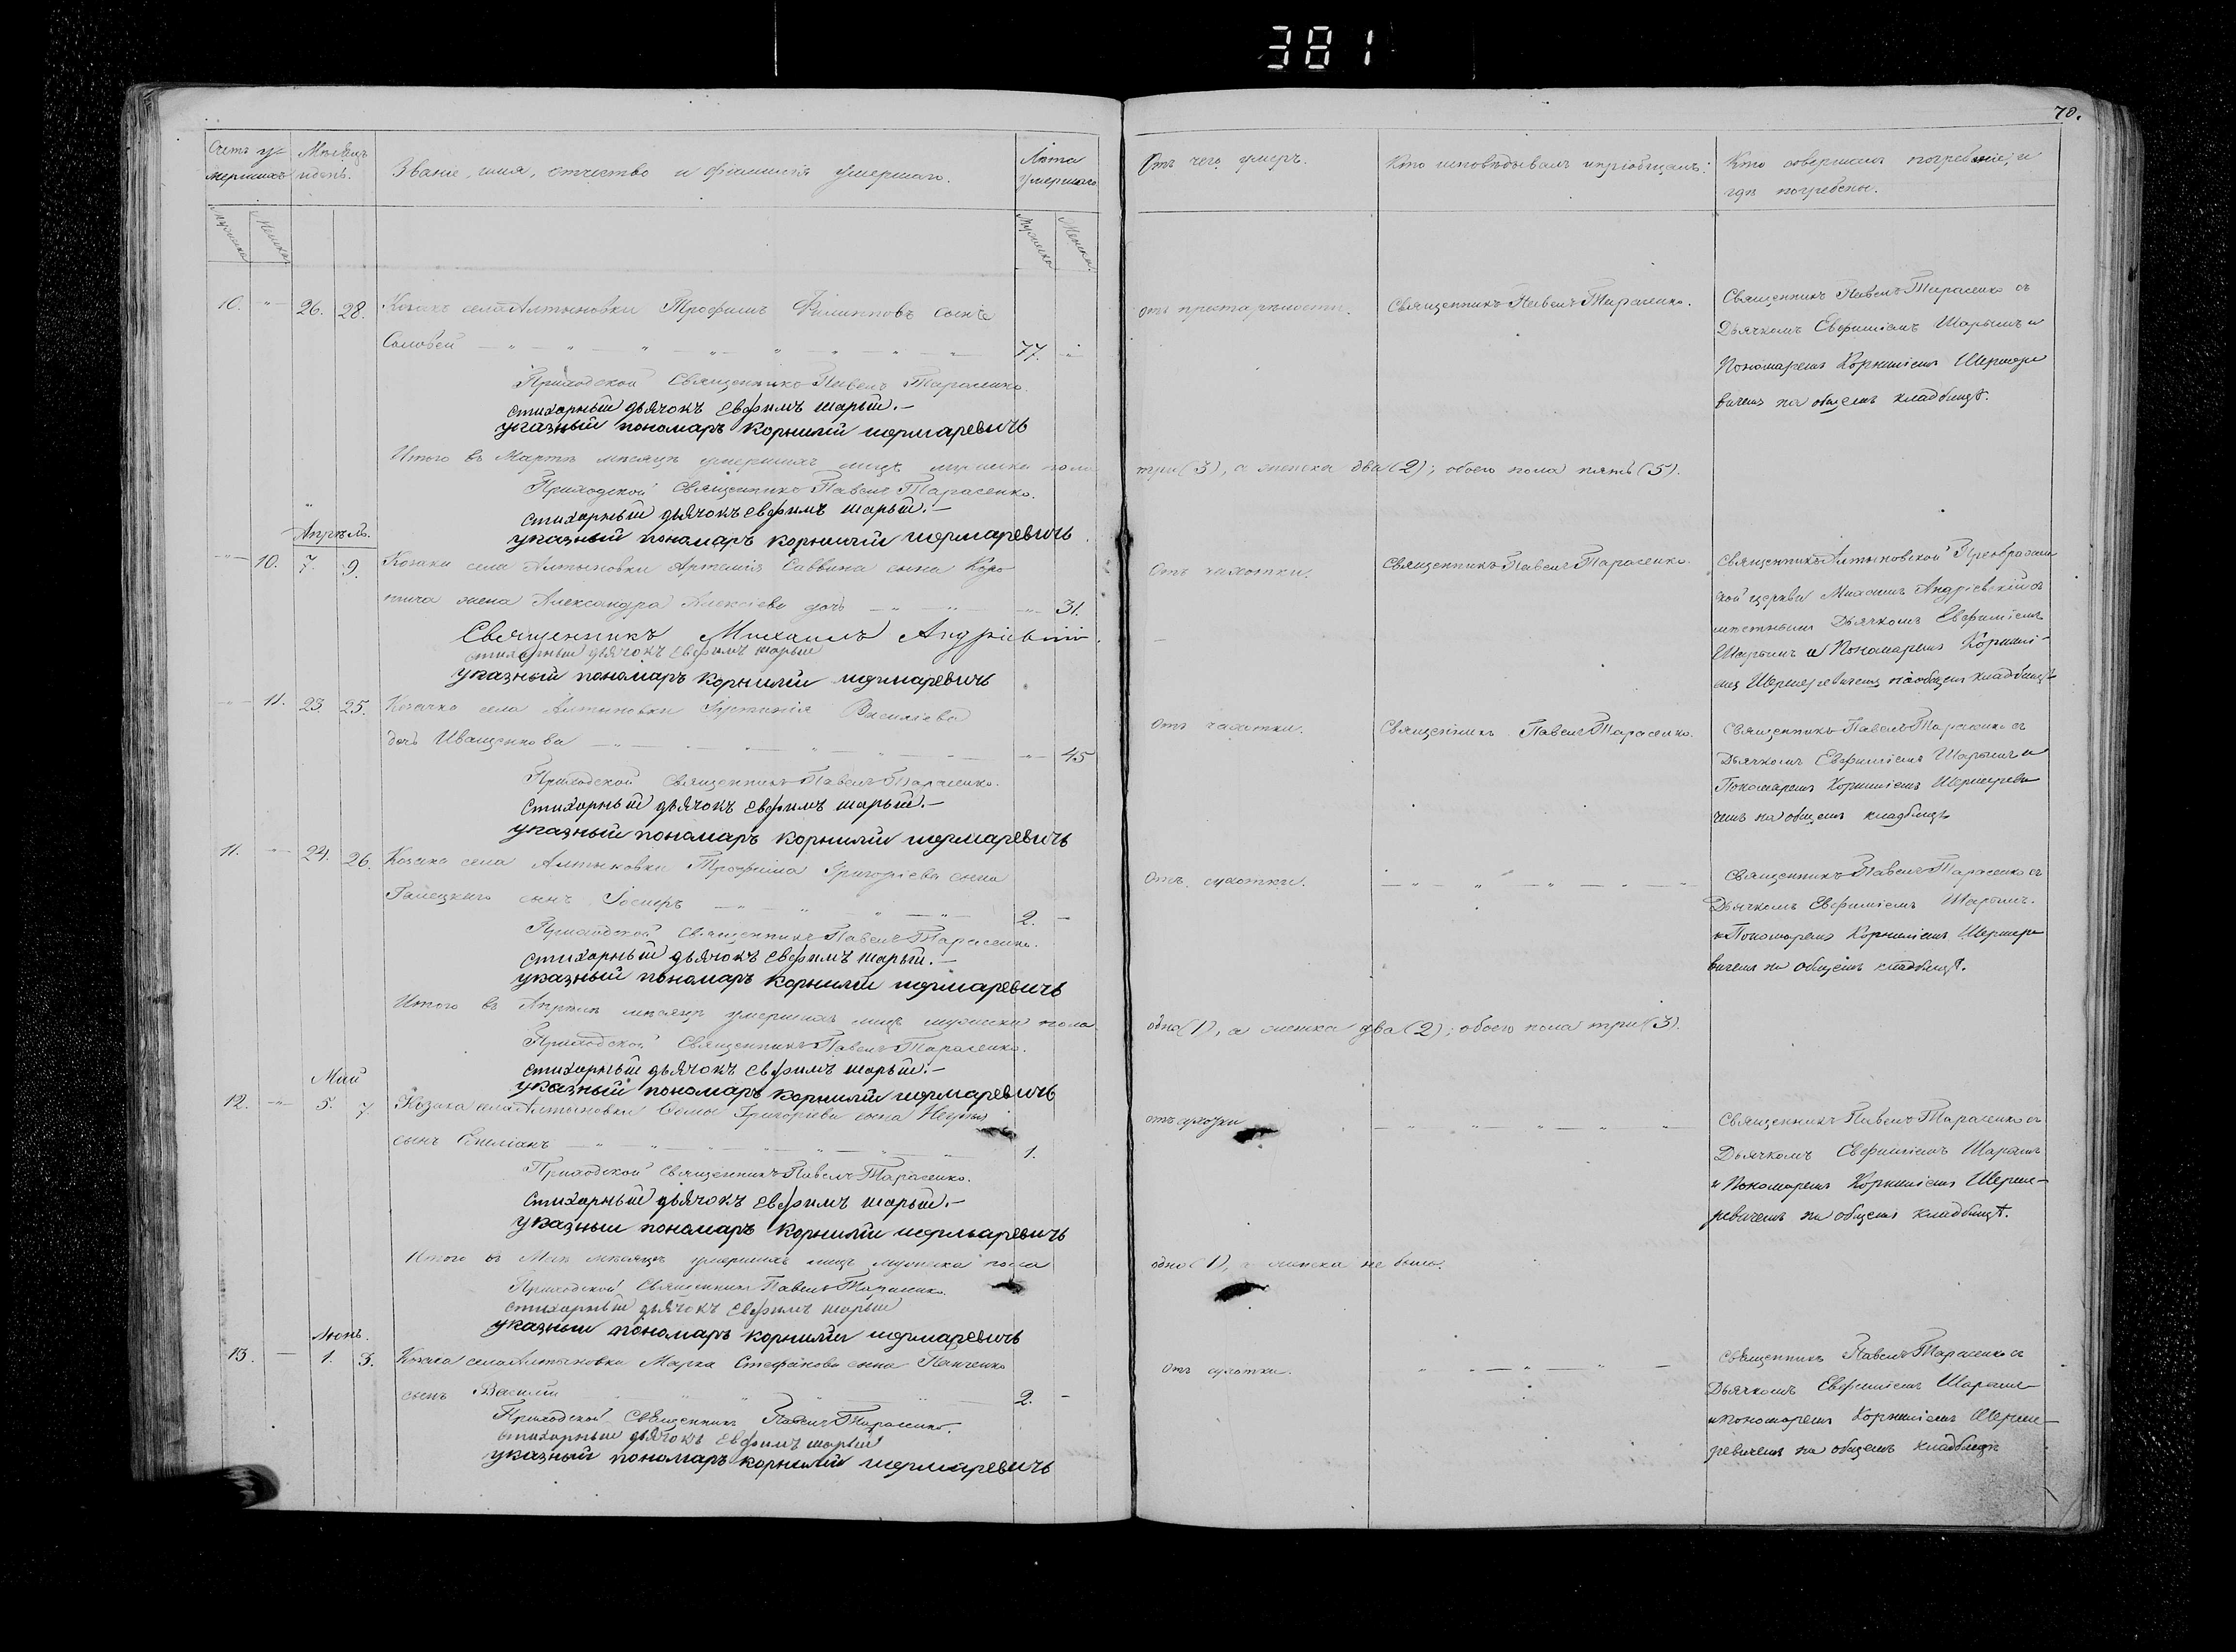 381
70.
Счетъ умершихъ
Мѣсяцъ и день.
Званіе, имя, отчество и фамилія умершаго.
Лѣта умершаго
Отъ чего умеръ.
Кто исповѣдывалъ и пріобщалъ:
Кто совершалъ погребеніе, и
гдѣ погребены.
Мужеска
Женска
Мужеска
Женска
10. " 26. 28. Козакъ села Алтыновки Трофимъ Филипповъ сынъ
Соловей 77. "
отъ престарѣлости.
Священникъ Павелъ Тарасенко.
Священникъ Павелъ Тарасенко съ
Дьячкомъ Евфиміемъ Шарымъ и
Пономаремъ Корниліемъ Шермаре
вичемъ на общемъ кладбищѣ.
Приходской Священникъ Павелъ Тарасенко.
стихарный дьячокъ Евфимъ шарый.
указный пономаръ корнилій шермаревичъ
Итого въ Мартѣ мѣсяцѣ умершихъ лицъ мужеска пола три (3), а женска два (2); обоего пола пять (5).
Приходской Священникъ Павелъ Тарасенко.
стихарный дьячокъ евфимъ шарый.
указный пономаръ корнилій шермаревичъ
Апрѣль.
" 10. 7. 9. Козака села Алтыновки Артемія Саввина сына Коро
жена Александра Алексіева дочь 31.
Отъ чахотки.
Священникъ Павелъ Тарасенко.
Священникъ Алтыновской Преображен
ской церкви Михаилъ Андріевскій съ
мѣстнымъ Дьячкомъ Евфиміемъ
Шарымъ и Пономаремъ Корнилі-
емъ Шермаревичемъ на общемъ кладбищѣ
Священникъ Михаилъ Андріевскій.
стихарный дьячокъ Евфимъ шарый
указный пономаръ корнилій шермаревичъ
" 11. 23. 25. Козачка села Алтыновки Васильева
дочь Иващенкова 45
Отъ чахотки.
Священникъ Павелъ Тарасенко.
Священникъ Павелъ Тарасенко съ
Дьячкомъ Евфиміемъ Шарымъ и
Пономаремъ Корниліемъ Шермареви
чемъ на общемъ кладбищѣ
Приходской Священникъ Павелъ Тарасенко.
стихарный дьячокъ евфимъ шарый.
указный пономаръ корнилій шермаревичъ
11. " 24. 26. Козака села Алтыновки Трофима Григоріева сына
сынъ Іосифъ 2.
Отъ сухотки.
Священникъ Павелъ Тарасенко съ
Дьячкомъ Евфиміемъ Шарымъ.
и Пономаремъ Корниліемъ Шермаре
вичемъ на общемъ кладбищѣ.
Приходской Священникъ Павелъ Тарасенко.
стихарный дьячокъ евфимъ шарый.
указный пономаръ корнилій шермаревичъ
Итого въ Апрѣлѣ мѣсяцѣ умершихъ лицъ мужеска пола одно (1), а женска два (2); обоего пола три (3).
Приходской Священникъ Павелъ Тарасенко.
стихарный дьячокъ евфимъ шарый.
указный пономаръ корнилій шермаревичъ
Май
12. " 5. 7. Козака села Алтыновки Григоріева сына
сынъ 1.
отъ сухотки
Священникъ Павелъ Тарасенко съ
Дьячкомъ Евфиміемъ Шарымъ
и Пономаремъ Корниліемъ Шерма-
ревичемъ на общемъ кладбищѣ.
Приходской Священникъ Павелъ Тарасенко.
стихарный дьячокъ евфимъ шарый.
указный пономаръ корнилій шермаревичъ
Итого въ Маѣ мѣсяцѣ умершихъ лицъ мужеска пола одно (1), а женска не было.
Приходской Священникъ Павелъ Тарасенко.
стихарный дьячокъ евфимъ шарый
указный пономаръ корнилій шермаревичъ
Июнь.
13. 1. 3. Козака села Алтыновки Марка Стефанова сына Панченко
сынъ Василій 2.
Отъ сухотки.
Священникъ Павелъ Тарасенко съ
Дьячкомъ Евфиміемъ Шарымъ
и пономаремъ Корниліемъ Шерма-
ревичемъ на общемъ кладбищѣ
Приходской Священникъ Павелъ Тарасенко.
стихарный дьячокъ евфимъ шарый
указный пономаръ корнилій шермаревичъ